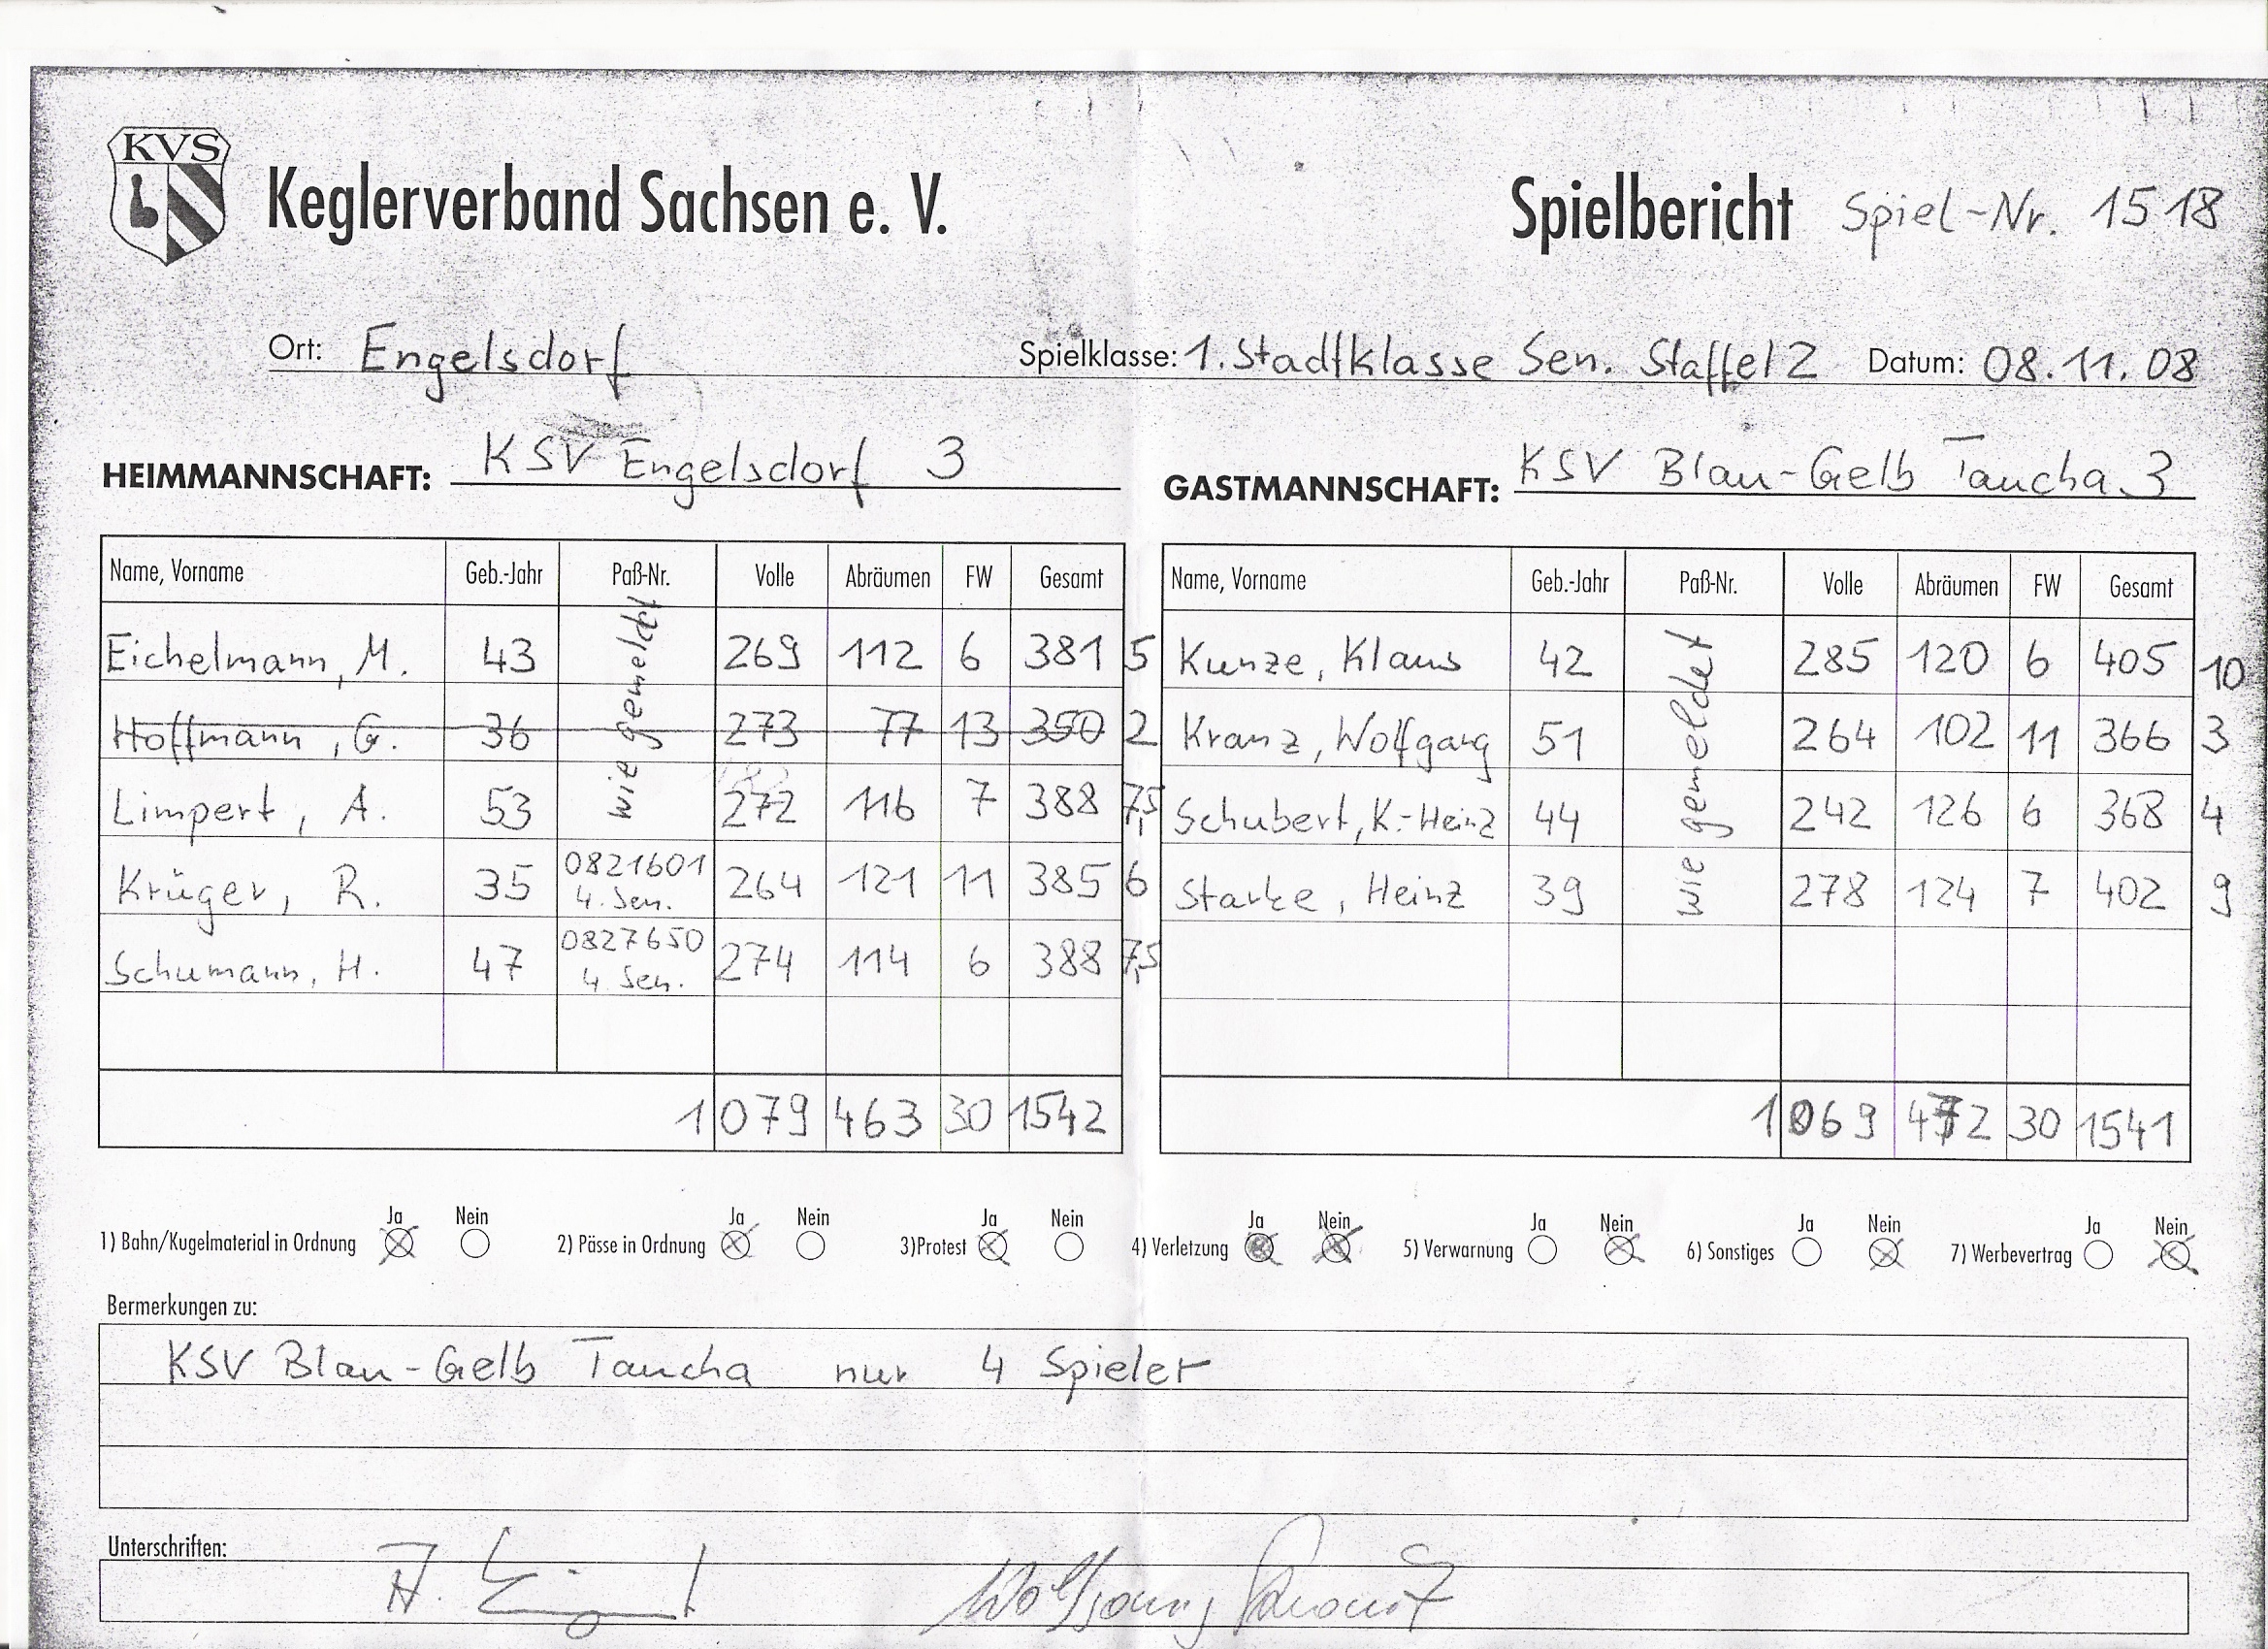 KVS
Keglerverband Sachsen e. V.
Spielbericht Spiel-Nr. 1518
Ort: Engelsdorf Spielklasse: 1. Stadtklasse Sen. Staffel 2 Datum: 08.11.08
HEIMMANNSCHAFT: KSV Engelsdorf 3
GASTMANNSCHAFT: KSV Blau-Gelb Taucha 3
Name, Vorname Geb.-Jahr Paß-Nr. Volle Abräumen FW Gesamt
wie gemeldet
Eichelmann, M. 43 269 112 6 381 5
Hoffmann, G. 36 273 77 13 350 2
Limpert, A. 53 272 116 7 388 7,5
Krüger, R. 35 0821601 4. Sen. 264 121 11 385 6
Schumann, H. 47 0827650 4. Sen. 274 114 6 388 7,5
1079 463 30 1542
Name, Vorname Geb.-Jahr Paß-Nr. Volle Abräumen FW Gesamt
wie gemeldet
Kunze, Klaus 42 285 120 6 405 10
Kranz, Wolfgang 51 264 102 11 366 3
Schubert, K.-Heinz 44 242 126 6 368 4
Starke, Heinz 39 278 124 7 402 9
1069 472 30 1541
1) Bahn/Kugelmaterial in Ordnung Ja Nein 2) Pässe in Ordnung Ja Nein 3)Protest Ja Nein 4) Verletzung Ja Nein 5) Verwarnung Ja Nein 6) Sonstiges Ja Nein 7) Werbevertrag Ja Nein
Bermerkungen zu:
KSV Blau-Gelb Taucha nur 4 Spieler
Unterschriften: